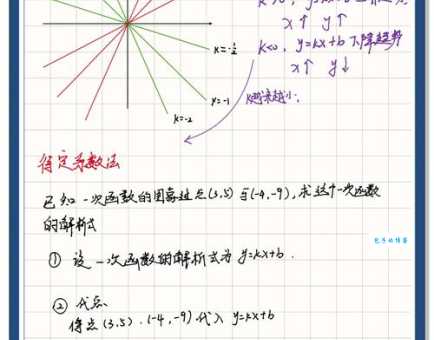 x↑ y↑
k<0, y=kx+b 下降趋势
x↑ y↓
k=-½
k=-1
k=-2
k越来越小;
待定系数法
已知一次函数的图象过点(3,5)与(-4,-9),求这个一次函数
的解析式
① 设一次函数的解析式为 y=kx+b.
② 代点
将点(3,5).(-4,-9)代入 y=kx+b